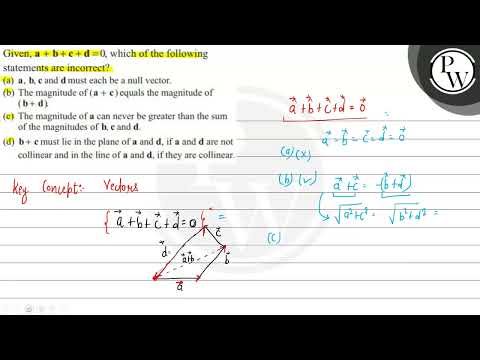 Given, a + b + c + d = 0, which of the following
statements are incorrect?
(a) a, b, c and d must each be a null vector.
(b) The magnitude of (a + c) equals the magnitude of
(b + d).
(c) The magnitude of a can never be greater than the sum
of the magnitudes of b, c and d.
(d) b + c must lie in the plane of a and d, if a and d are not
collinear and in the line of a and d, if they are collinear.
Key Concept:- Vectors
{ a⃗ + b⃗ + c⃗ + d⃗ = 0 } =
d⃗
c⃗
a⃗+b⃗
b⃗
a⃗
PW
a⃗ + b⃗ + c⃗ + d⃗ = 0⃗
a⃗ = b⃗ = c⃗ = d⃗ = 0⃗
(a) (x)
(b) (✓) a⃗ + c⃗ = -(b⃗ + d⃗)
√a²+c² = √b²+d² =
(c)